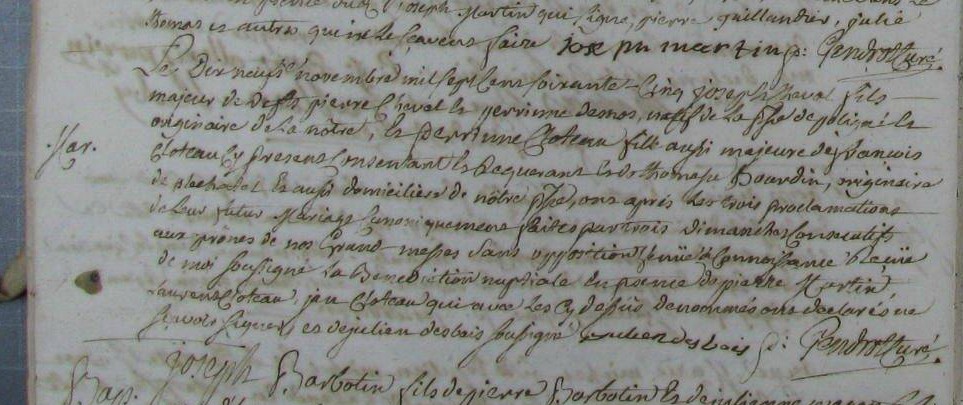 joseph Martin qui signe, pierre gaillandre, julie
thomas et autres qui ne le sçavent faire joseph martin p: Gendrot Curé.
Le Dix neuf novembre mil sept cens soixante Cinq joseph cheval fils
majeur de defts pierre Cheval et perrinne demos, natif de la psse de poligné et
originaire de La nôtre, Et Perrinne Cloteau fille aussi majeure de françois
Mar.
Cloteau Cy present Consentant et Requerant et de thomase Bourdin, originaire
de plechatel Et aussi domiciliée de nôtre psse, ons après Les trois proclamations
de Leur futur Mariage Canoniquement faites par trois dimanches Consecutifs
aux prônes de nos Grand messes sans opposition venüe à Connoissance Receüe
de moi soussigné La Benediction nuptiale En présence de pierre Martin
Laurens Cloteau, jan Cloteau qui avec Les Cy dessus denommés ons declarés ne
sçavoir signer, et de julien desbois soussigné julien des bois p: Gendrot Curé.
Bap. joseph Barbotin fils de pierre Barbotin Et de julienne